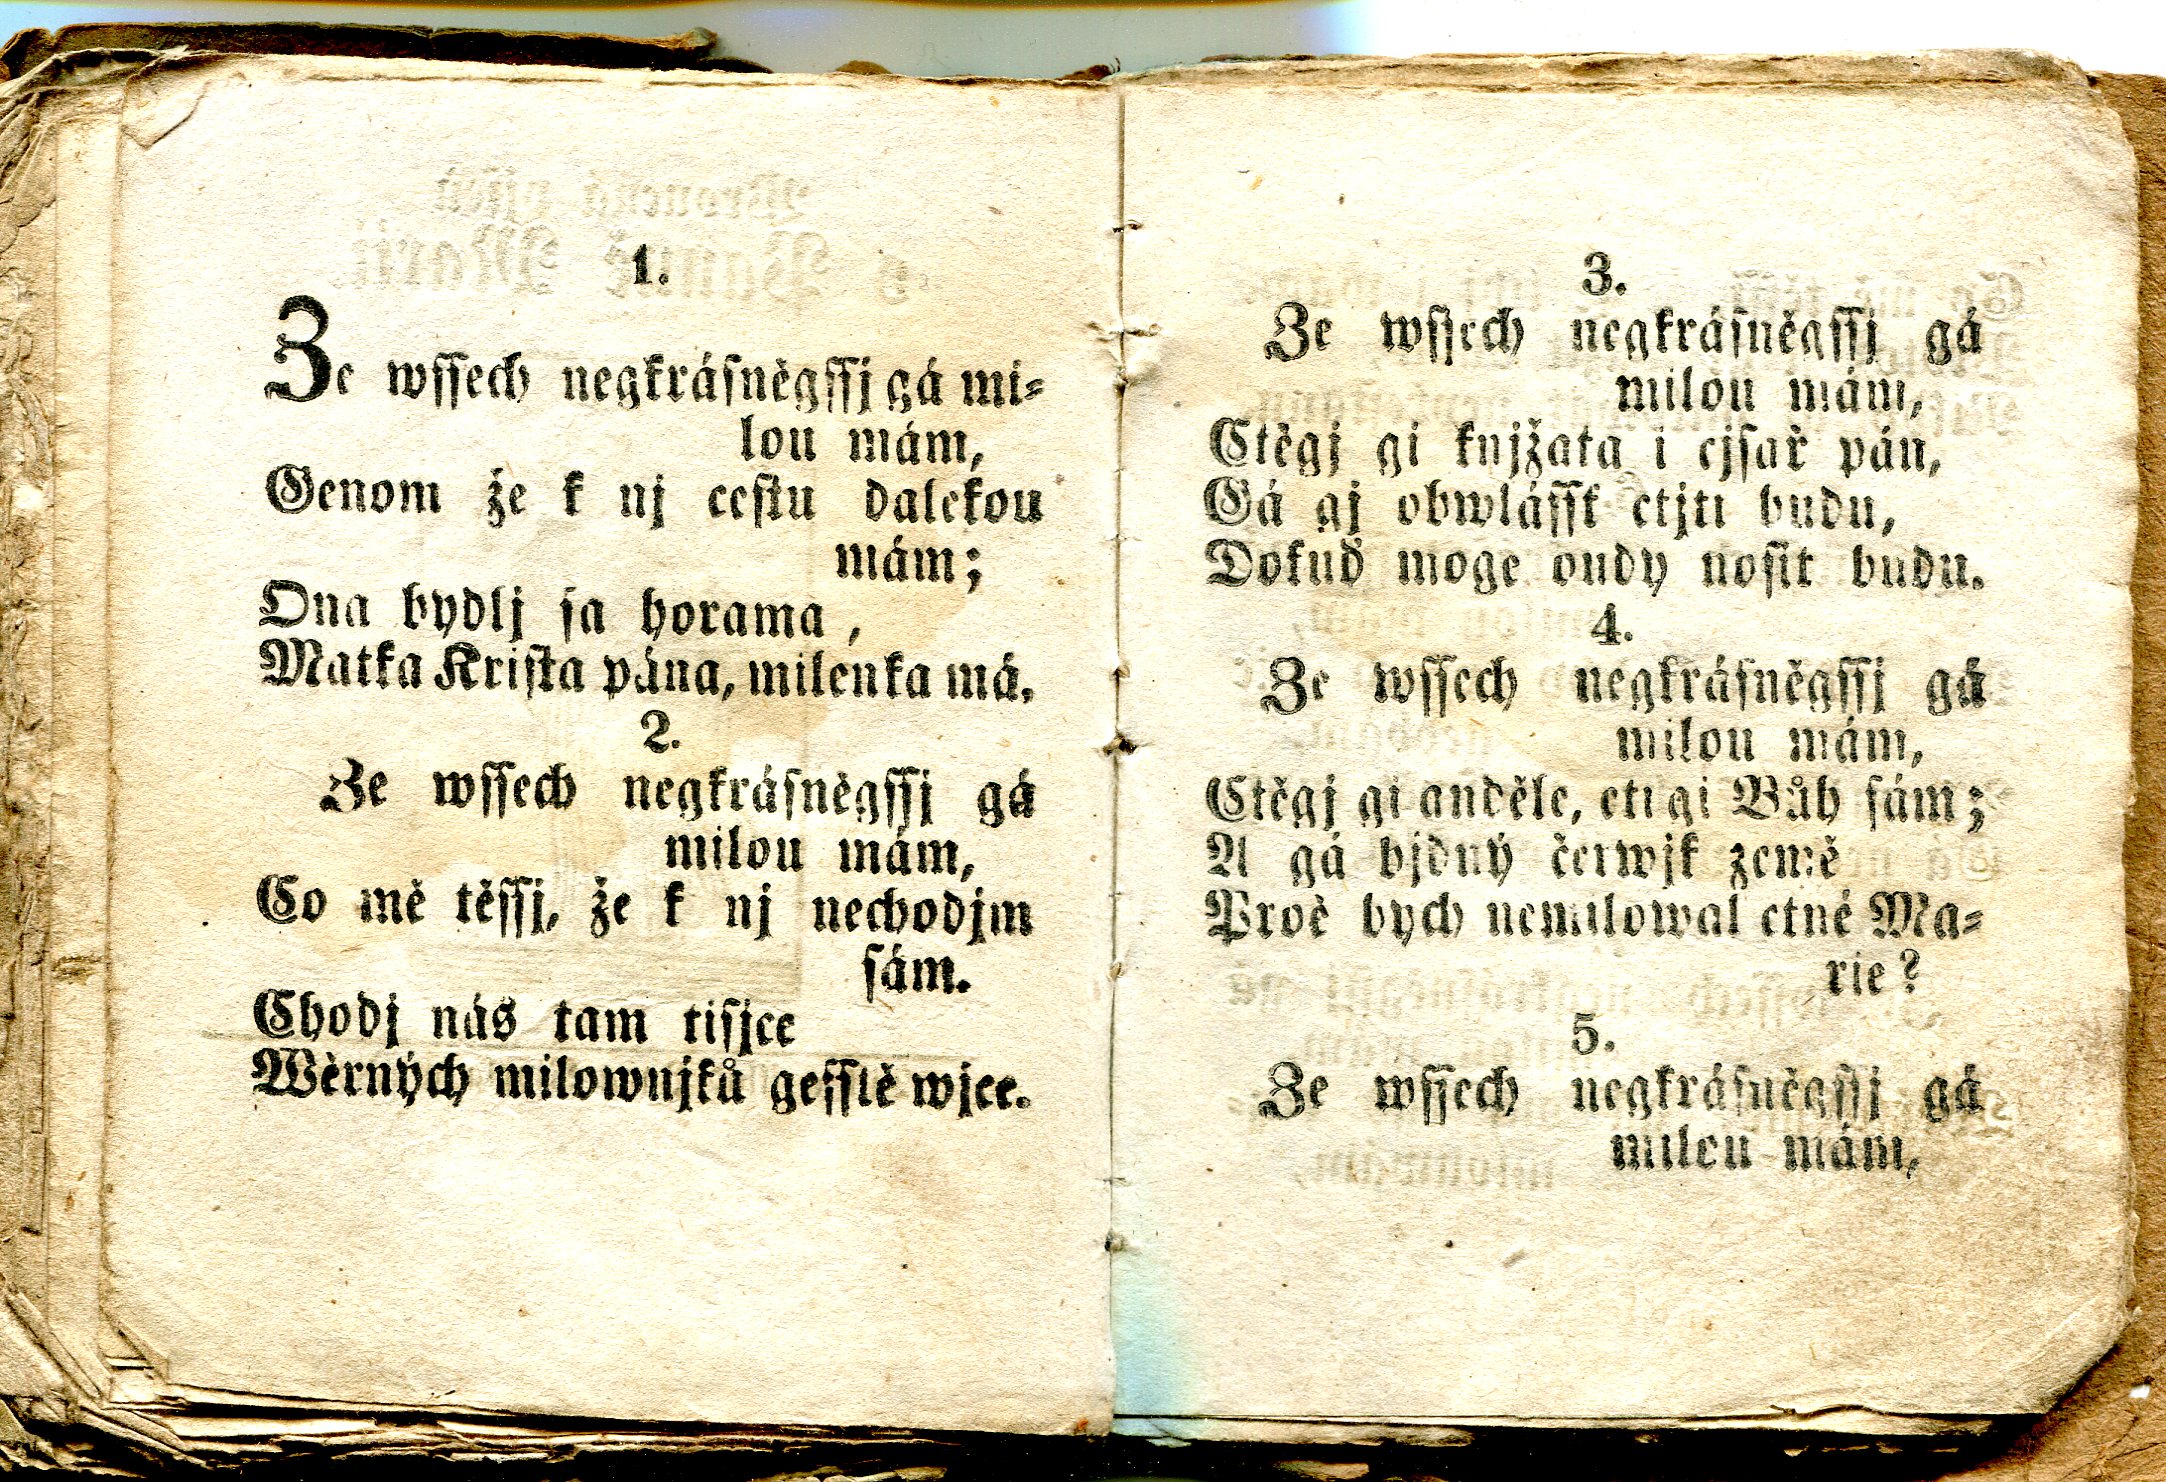 1.
Ze wssech negkrásněgssj gá mi-
lou mám,
Genom že k nj cestu dalekou
mám;
Ona bydlj ja horama,
Matka Krista pána, milenka má.
2.
Ze wssech negkrásněgssj gá
milou mám,
Co mě těssj, že k nj nechodjm
sám.
Chodj nás tam tisjce
Wěrných milownjků gesstě wjce.
3.
Ze wssech negkrásněgssj gá
milou mám,
Ctěgj gi knjžata i cjsař pán,
Gá gj obwlásst ctjti budu,
Dokuď moge oudy nosit budu.
4.
Ze wssech negkrásněgssj gá
milou mám,
Ctěgj gi anděle, cti gi Bůh sám;
A gá bjdný čerwjk země
Proč bych nemilowal ctné Ma-
rie?
5.
Ze wssech negkrásněgssj gá
milou mám,